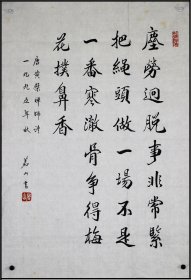 塵勞迴脫事非常緊
把繩頭做一場不是
一番寒澈骨爭得梅
花撲鼻香
唐黃檗禪師詩
一九九五年秋